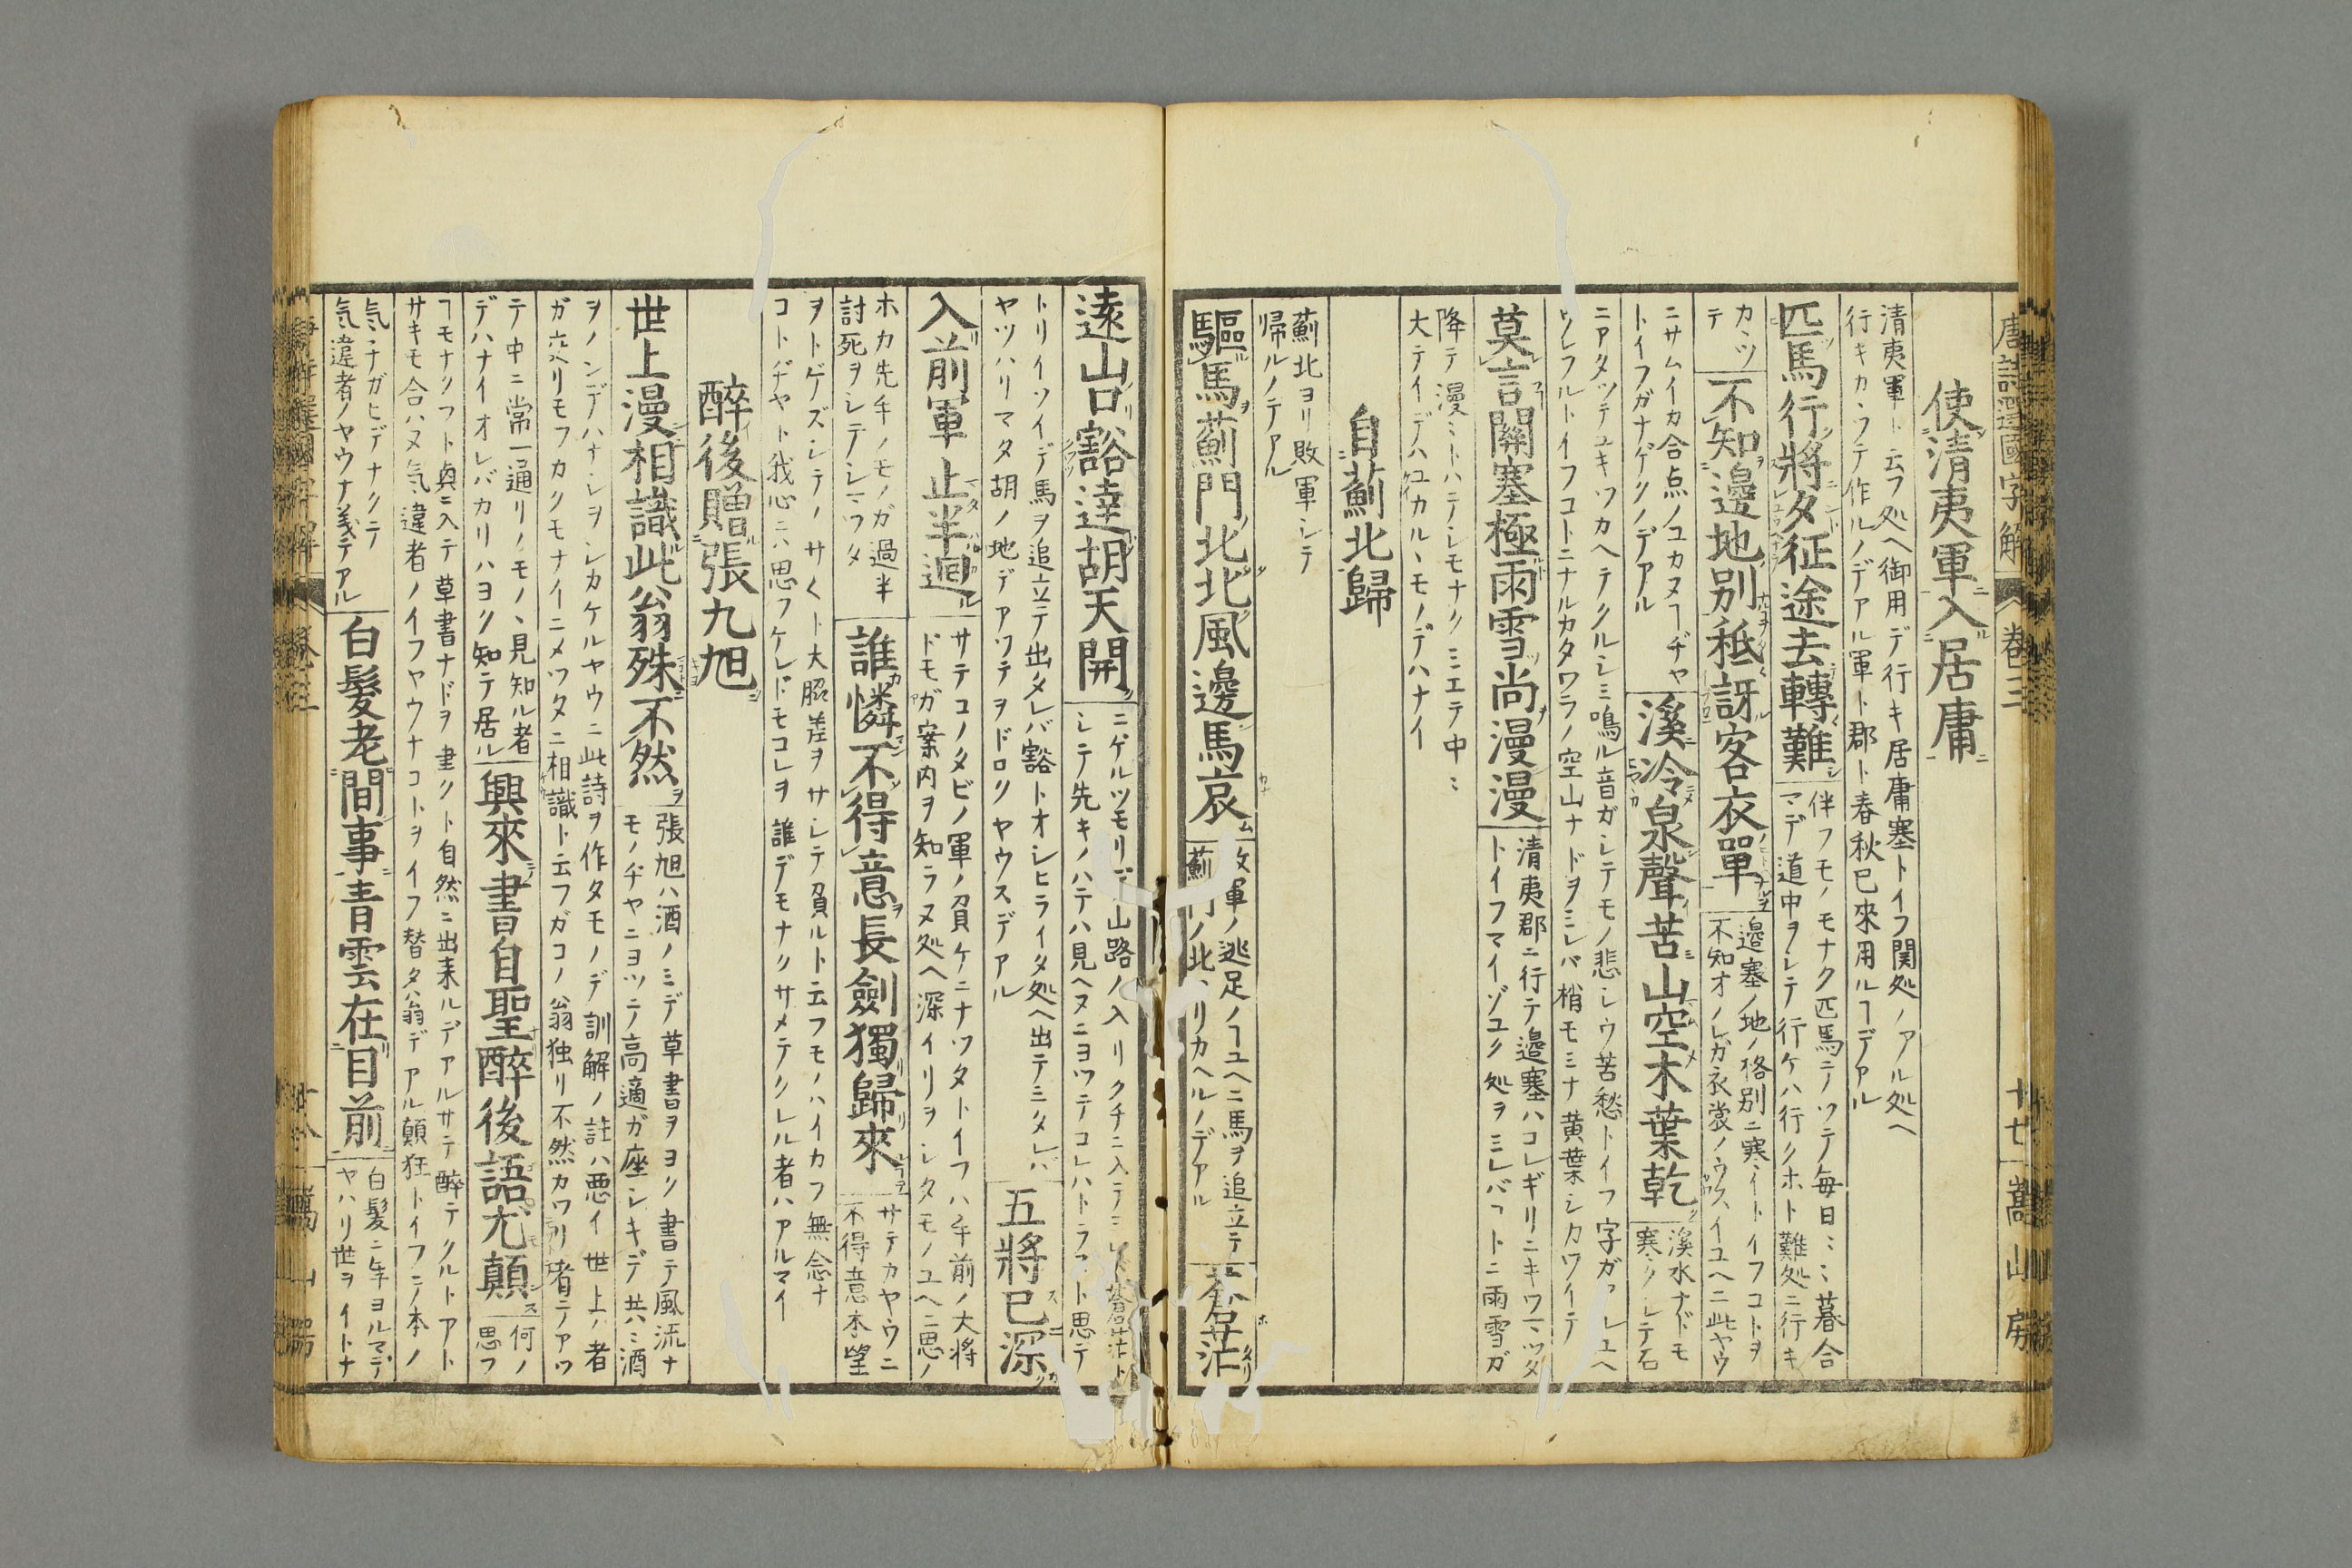 唐詩選國字解 卷三 十七 嵩山房
使清夷軍入居庸
清夷軍ト云フ処ヘ御用デ行キ居庸塞トイフ関処ノアル処ヘ
行キカヽツテ作ルノデアル軍ト郡ト春秋已來用ルヿデアル
匹馬行將夕征途去轉難
伴フモノモナク匹馬ニノツテ毎日〻〻暮合
マデ道中ヲシテ行ケハ行クホト難処ニ行キ
カヽツ
テ
不知邊地別秪訝客衣單
邉塞ノ地ノ格別ニ寒イトイフコトヲ
不知オノレガ衣裳ノウスイユヘニ此ヤウ
ニサムイカ合点ノユカヌヿヂヤ
トイフガナゲクノデアル
溪冷泉聲苦山空木葉乾
溪水ナドモ
寒クシテ石
ニアタツテユキツカヘテクルシミ鳴ル音ガシテモノ悲シウ苦愁トイフ字ガアレユヘ
ウレフルトイフコトニナルカタワラノ空山ナドヲミレバ梢モミナ黄葉シカワイテ
莫言關塞極雨雪尚漫漫
清夷郡ニ行テ邉塞ハコレギリニキワマツタ
トイフマイゾユク処ヲミレバヿトニ雨雪ガ
降テ漫〻トハテシモナクミエテ中〻
大テイデハユカルヽモノデハナイ
自薊北歸
薊北ヨリ敗軍シテ
帰ルノテアル
驅馬薊門北北風邊馬哀
敗軍ノ逃足ノヿユヘニ馬ヲ追立テ
薊門ノ北ヨリカヘルノデアル
蒼茫
遠山口豁達胡天開
ニゲルツモリデ山路ノ入リクチニ入テミレバ蒼茫ト
シテ先キノハテハ見ヘヌニヨツテコレハトラフト思テ
トリイソイデ馬ヲ追立テ出タレバ豁トオシヒライタ処ヘ出テミタレバ
ヤツハリマタ胡ノ地デアツテヲドロクヤウスデアル
五將已深
入前軍止半迴
サテコノタビノ軍ノ負ケニナツタトイフハ手前ノ大將
ドモガ案内ヲ知ラヌ処ヘ深イリヲシタモノユヘニ思ノ
ホカ先手ノモノガ過半
討死ヲシテシマツタ
誰憐不得意長劍獨歸來
サテカヤウニ
不得意本望
ヲトゲズシテノサ〱ト大脇差ヲサシテ負ルト云フモノハイカフ無念ナ
コトヂヤト我心ニハ思フケレドモコレヲ誰デモナクサメテクレル者ハアルマイ
醉後贈張九旭
世上漫相識此翁殊不然
張旭ハ酒ノミデ草書ヲヨク書テ風流ナ
モノヂヤニヨツテ高適ガ座シキデ共ニ酒
ヲノンデハナシヲシカケルヤウニ此詩ヲ作タモノデ訓解ノ註ハ悪イ世上ノ者
ガ立ヘリモフカクモナイニメツタニ相識ト云フガコノ翁独リ不然カワリ者テアツ
テ中ニ常一通リノモノヽ見知ル者
デハナイオレバカリハヨク知テ居ル
興來書自聖醉後語尤顛
何ノ
思フ
ヿモナクフト興ニ入テ草書ナドヲ書クト自然ニ出来ルデアルサテ醉テクルトアト
サキモ合ハヌ気違者ノイフヤウナコトヲイフ替タ翁デアル顛狂トイフテ本ノ
気チガヒデナクテ
気違者ノヤウナ義テアル
白髮老間事青雲在目前
白髪ニ年ヨルマデ
ヤハリ世ヲイトナ
唐詩選國字解 卷三 十八 嵩山房